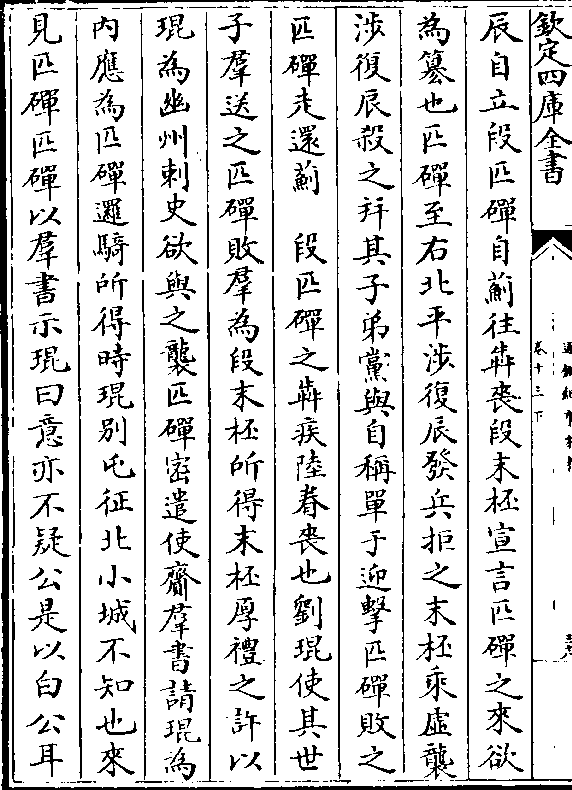 欽定四庫全書
通鑑紀事本末
卷十三下
辰自立段匹磾自薊往犇喪段末柸宣言匹磾之來欲
為簒也匹磾至右北平涉復辰發兵拒之末柸乘虛襲
涉復辰殺之并其子弟黨與自稱單于迎擊匹磾敗之
匹磾走還薊　段匹磾之犇疾陸眷喪也劉琨使其世
子羣送之匹磾敗羣為段末柸所得末柸厚禮之許以
琨為幽州刺史欲與之襲匹磾密遣使齎羣書請琨為
内應為匹磾邏騎所得時琨别屯征北小城不知也來
見匹磾匹磾以羣書示琨曰意亦不疑公是以白公耳